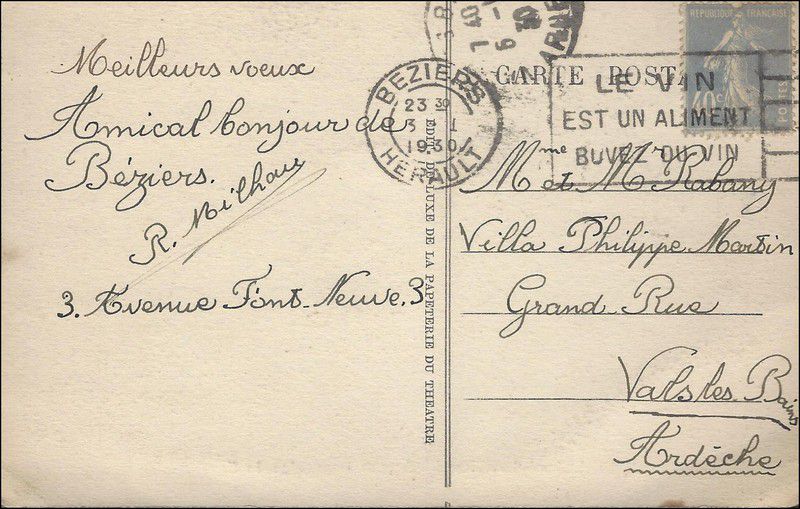 Meilleurs voeux
Amical bonjour de
Béziers.
R. Milhau
3. Avenue Font-Neuve. 3
EDIT. DE LUXE DE LA PAPETERIE DU THEATRE
CARTE POSTA
BEZIERS
23 30
3 - 1
1930
HERAULT
7 40
6 -
30
LE VIN
EST UN ALIMENT
BUVEZ DU VIN
REPUBLIQUE FRANÇAISE
40c
POSTES
Mme et Mr Rabany
Villa Philippe Martin
Grand Rue
Vals les Bains
Ardèche